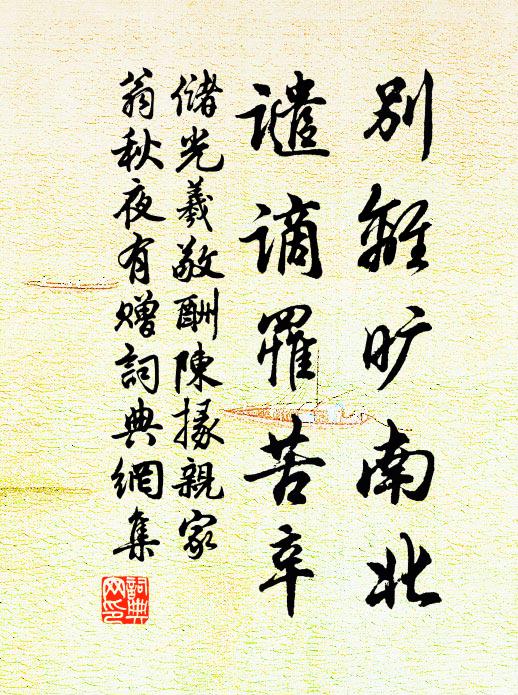 別離旷南北
譴謫罹苦辛
儲光羲敬酬陳掾親家
翁秋夜有赠詞典網集
詞典
网印